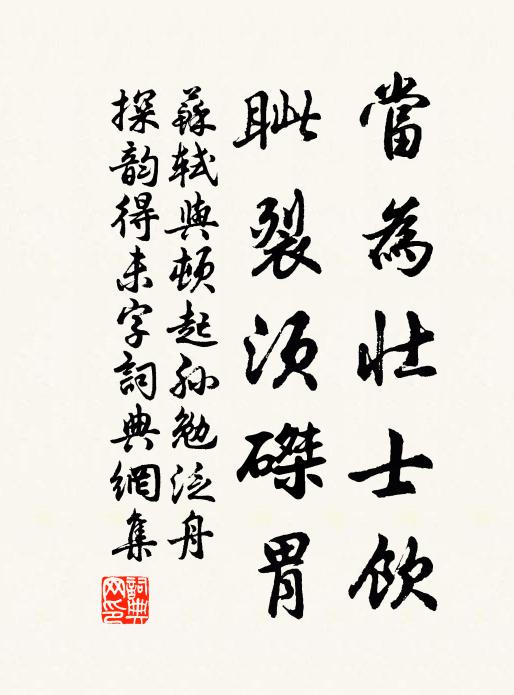 當為壯士飲
眦裂須磔胃
蘇軾與頓起孫勉泛舟
探韵得未字詞典網集
詞典網印